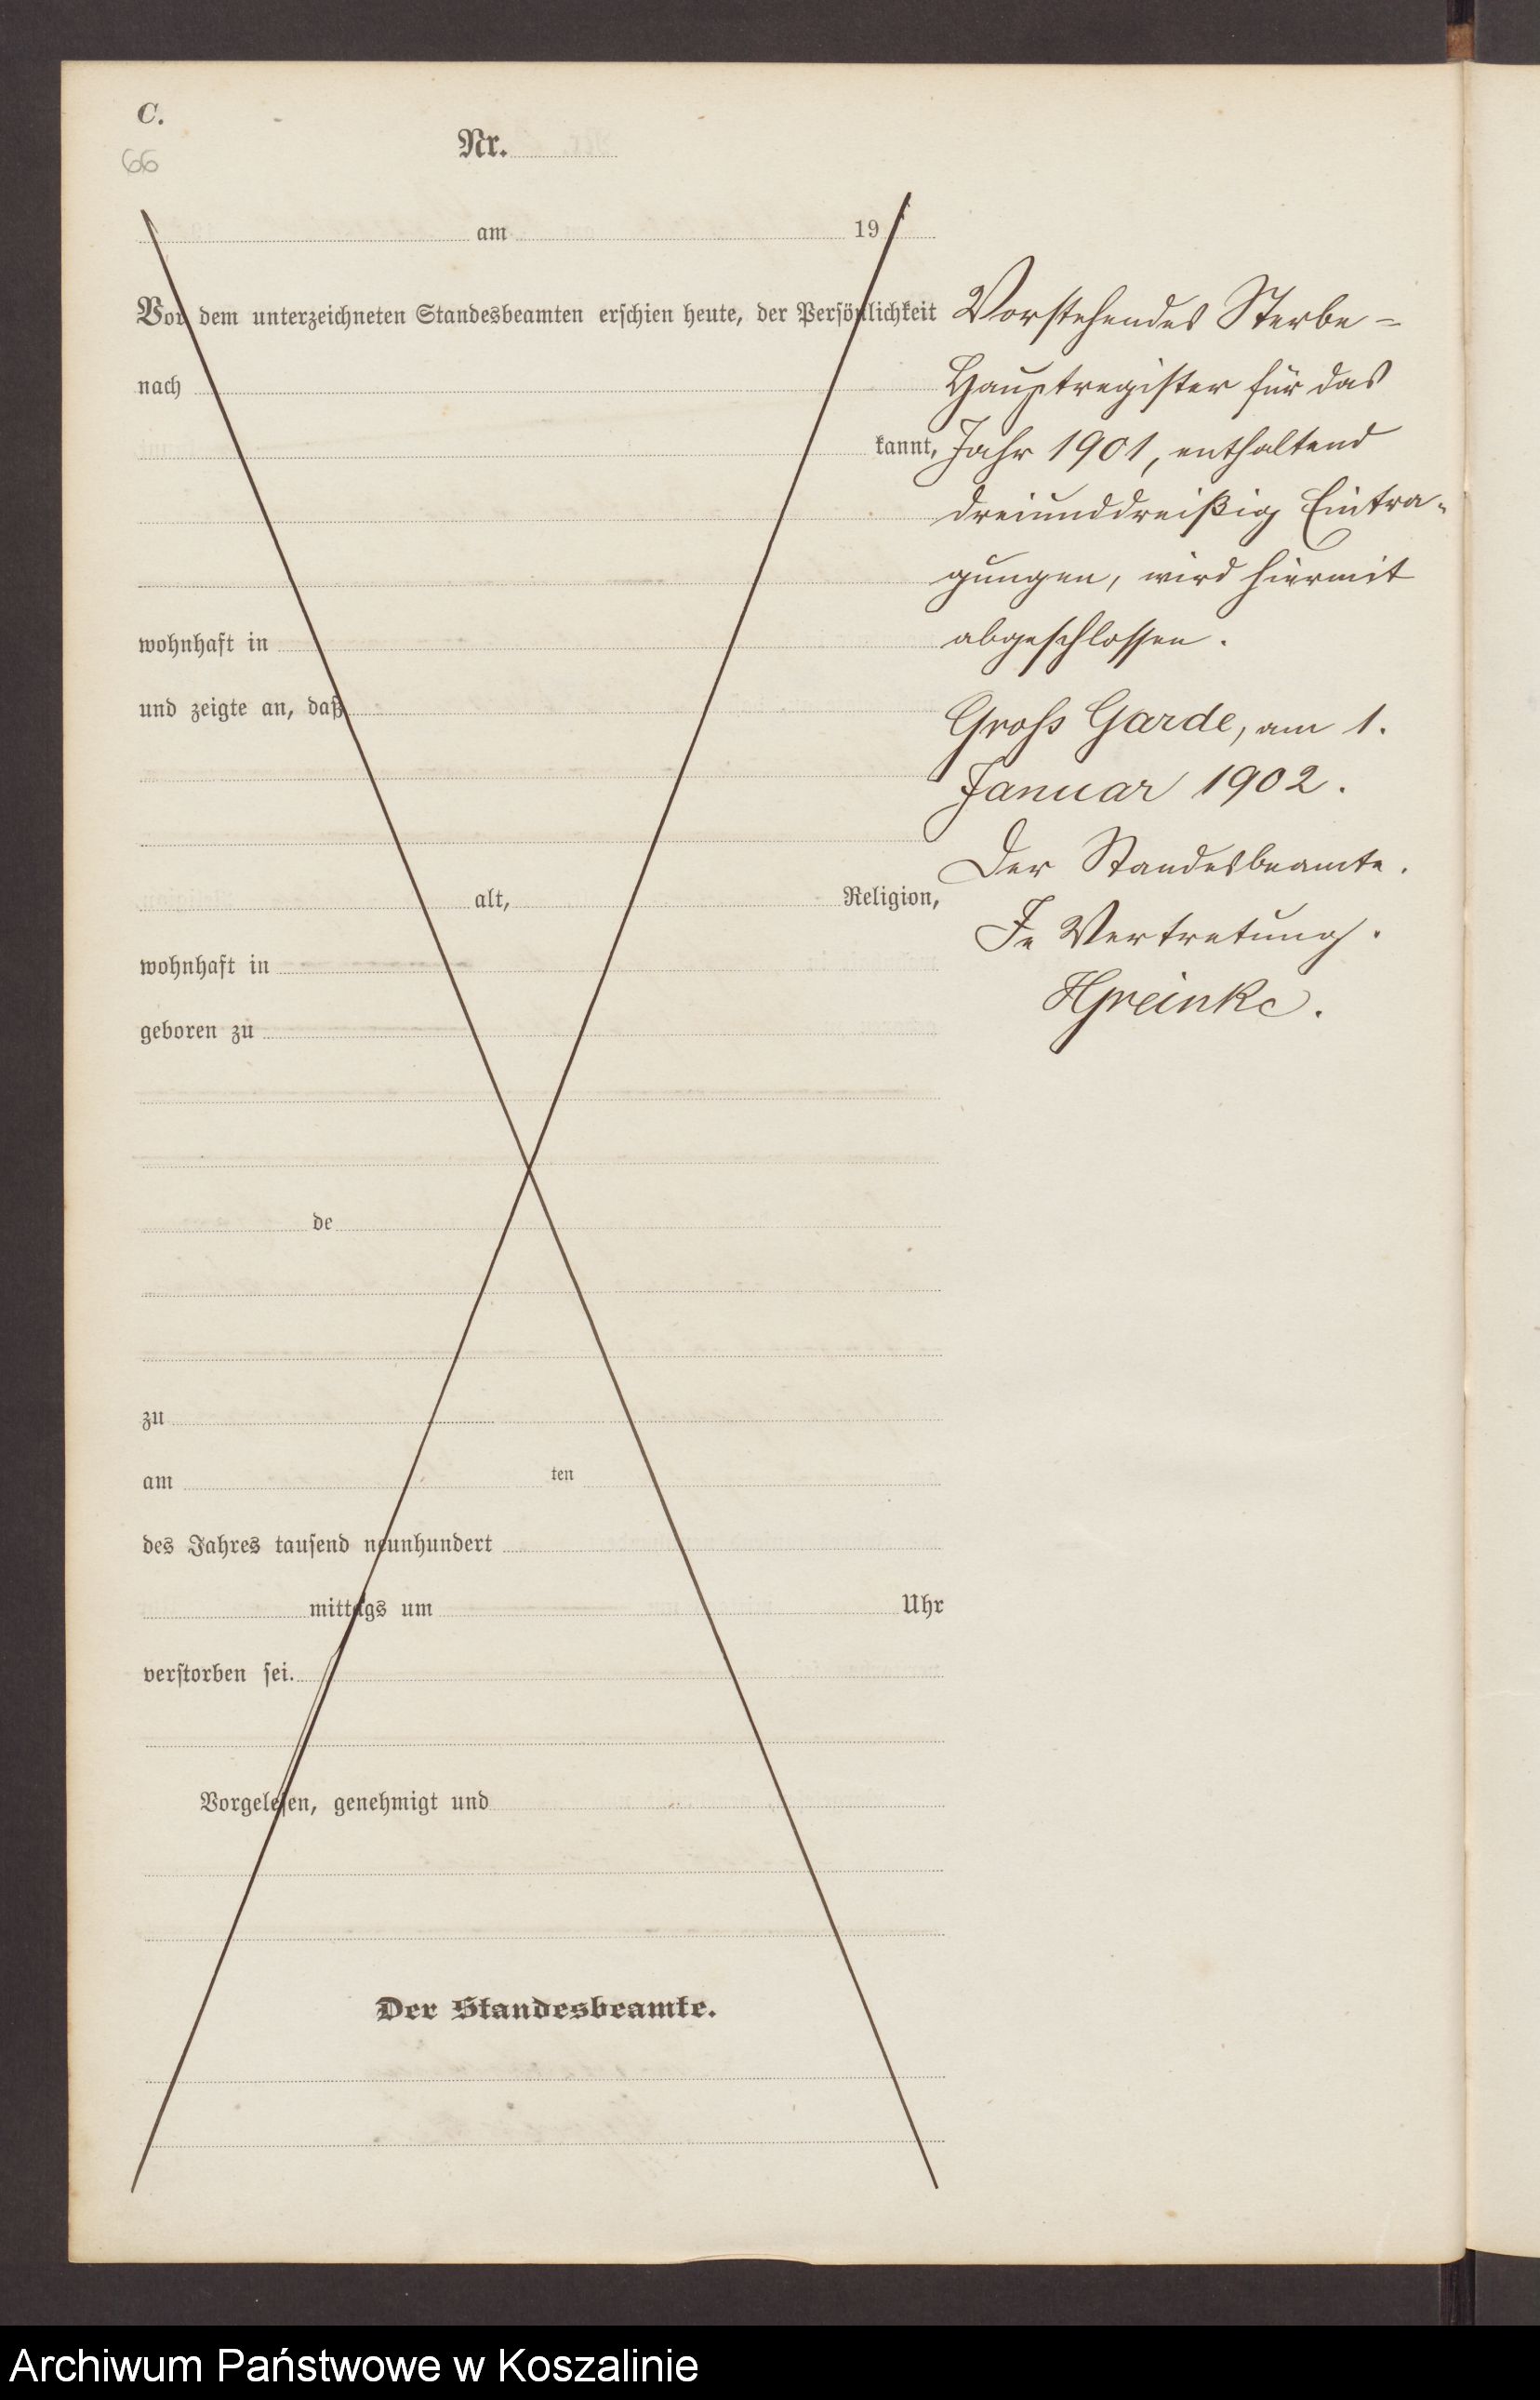 C.
66
Nr.
am 19
Vor dem unterzeichneten Standesbeamten erschien heute, der Persönlichkeit
nach
kannt,
wohnhaft in
und zeigte an, daß
alt, Religion,
wohnhaft in
geboren zu
de
zu
am ten
des Jahres tausend neunhundert
mittags um Uhr
verstorben sei.
Vorgelesen, genehmigt und
Der Standesbeamte.
Vorstehendes Sterbe-
Hauptregister für das
Jahr 1901, enthaltend
dreiunddreißig Eintra-
gungen, wird hiermit
abgeschlossen.
Gross Garde, am 1.
Januar 1902.
Der Standesbeamte.
In Vertretung.
Archiwum Państwowe w Koszalinie